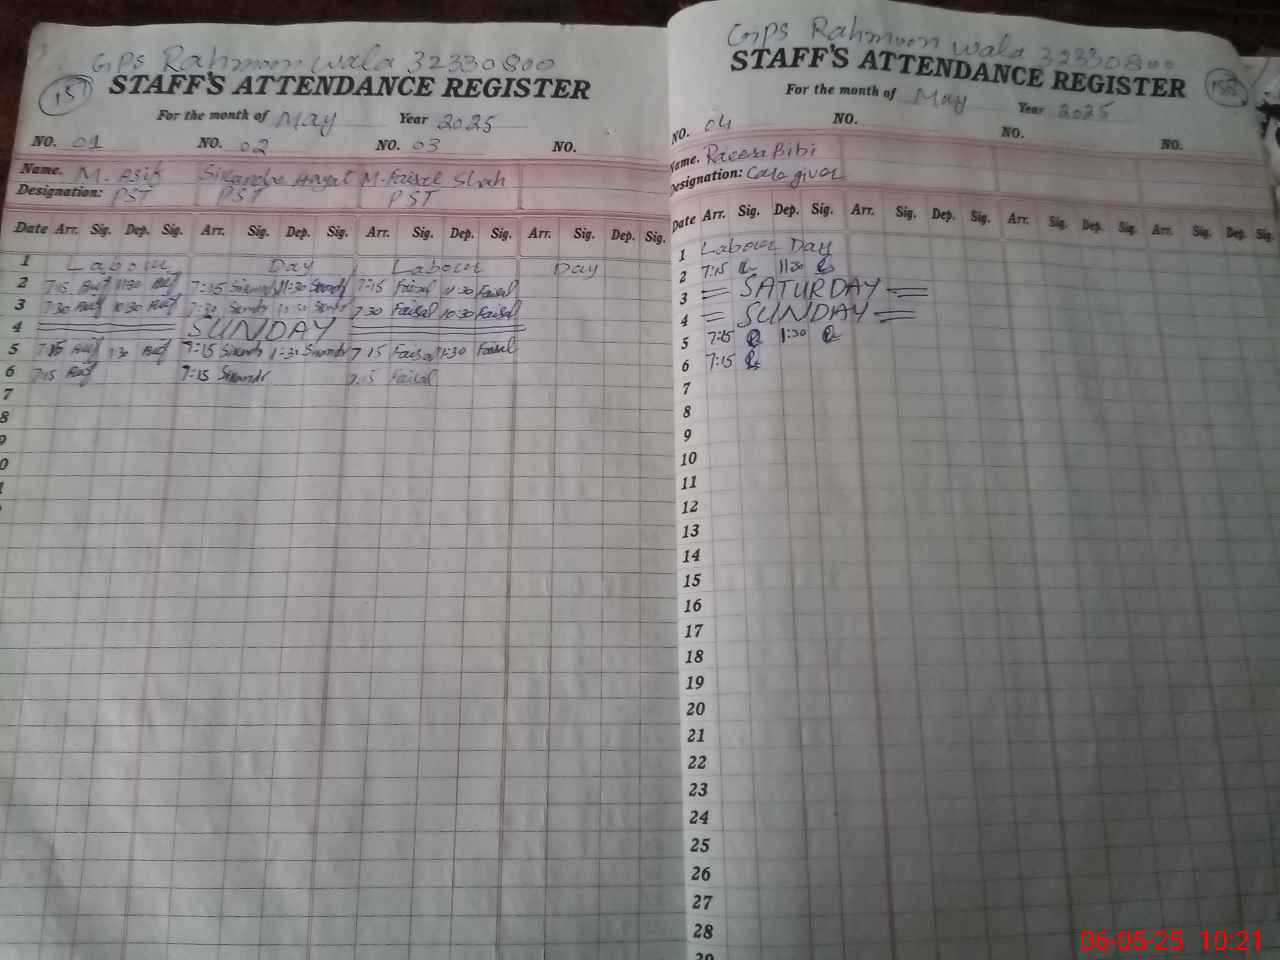 GPS Rahmoon Wala 32330800
151
STAFF'S ATTENDANCE REGISTER
For the month of May Year 2025
NO. 01 NO. 02 NO. 03 NO.
Name. M. Asif Sikandar Hayat M. Faisal Shah
Designation: PST PST PST
Date Arr. Sig. Dep. Sig. Arr. Sig. Dep. Sig. Arr. Sig. Dep. Sig. Arr. Sig. Dep. Sig.
1 Labour Day Labour Day
2 7:15 Asif 11:30 Asif 7:15 11:30 7:15 Faisal 11:30 Faisal
3 7:30 Asif 10:30 Asif 7:30 10:30 7:30 Faisal 10:30 Faisal
4 SUNDAY
5 7:15 Asif 1:30 Asif 7:15 11:30 7:15 Faisal 11:30 Faisal
6 7:15 Asif 7:15 7:15 Faisal
7
8
9
0
1
GPS Rahmoon Wala 32330800
STAFF'S ATTENDANCE REGISTER
For the month of May Year 2025
NO. 04 NO. NO. NO.
Name. Raeesa Bibi
Designation: Care giver
Date Arr. Sig. Dep. Sig. Arr. Sig. Dep. Sig. Arr. Sig. Dep. Sig. Arr. Sig. Dep. Sig.
1 Labour Day
2 7:15 11:30
3 SATURDAY
4 SUNDAY
5 7:15 1:30
6 7:15
7
8
9
10
11
12
13
14
15
16
17
18
19
20
21
22
23
24
25
26
27
28
29
06-05-25 10:21